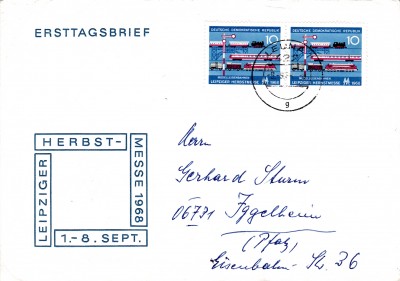 ERSTTAGSBRIEF
DEUTSCHE DEMOKRATISCHE REPUBLIK
10
LEIPZIGER HERBSTMESSE 1968
DEUTSCHE DEMOKRATISCHE REPUBLIK
10
LEIPZIGER HERBSTMESSE 1968
LEUNA
g
LEIPZIGER
HERBST-
MESSE 1968
1.-8. SEPT.
Herrn
Gerhard Sturm
06731 Iggelheim
(Pfalz)
Eisenbahn-Str. 36